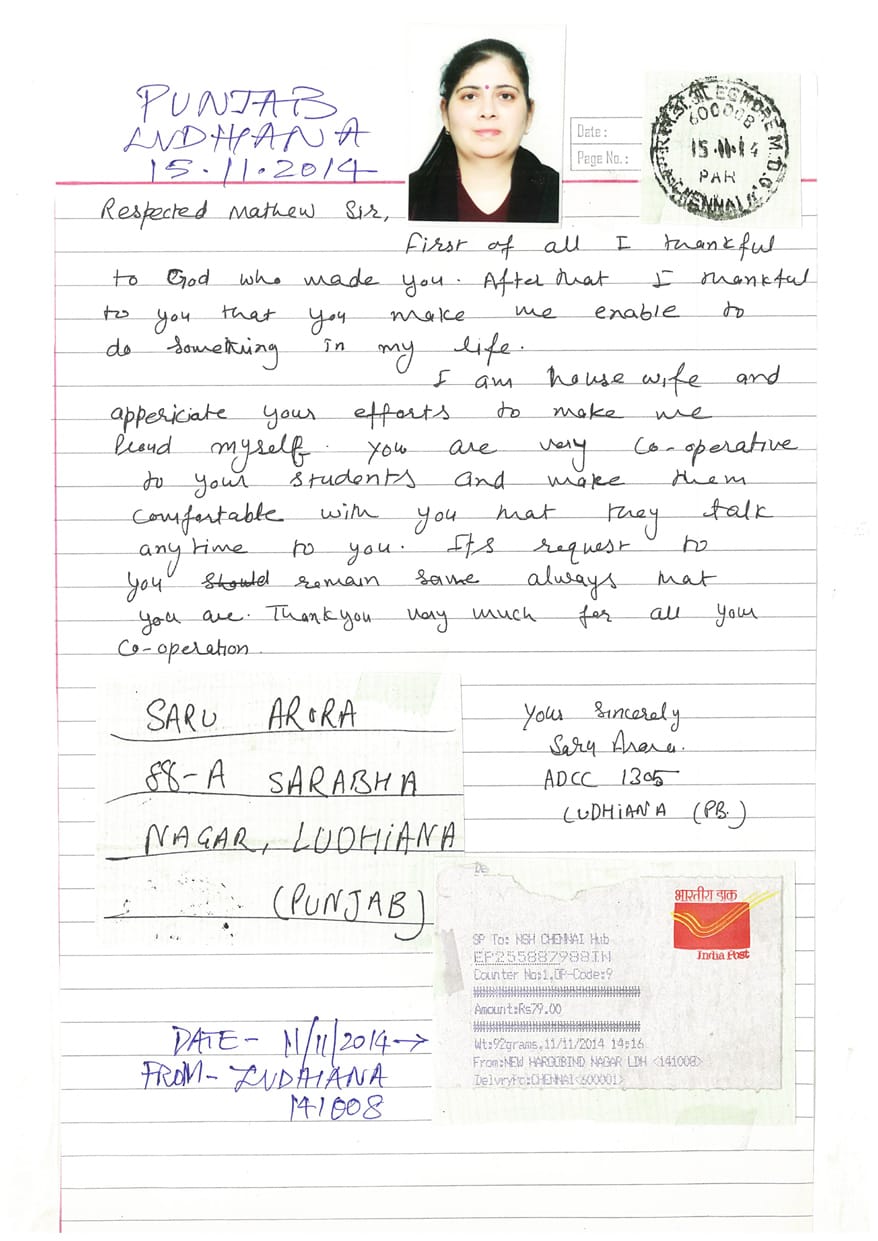 PUNJAB
LUDHIANA
15.11.2014
Date:
Page No.:
EGMORE M.D.O.
600008
15.11.14
PAR
CHENNAI
Respected Mathew Sir,
First of all I thankful
to God who made you. After that I thankful
to you that you make me enable to
do something in my life.
I am house wife and
appericiate your efforts to make me
Proud myself. You are very Co-operative
to your students and make them
Comfortable with you that they talk
anytime to you. Its request to
you should remain same always that
you are. Thankyou very much for all your
Co-operation.
SARU ARORA
88-A SARABHA
NAGAR, LUDHIANA
(PUNJAB)
Yours Sincerely
Saru Arora.
ADCC 1305
LUDHIANA (PB.)
भारतीय डाक
India Post
SP To: NSH CHENNAI Hub
EP255887988IN
Counter No:1,OP-Code:9
Amount:Rs79.00
Wt:92grams,11/11/2014 14:16
From:NEW HARGOBIND NAGAR LDH <141008>
Delvryto:CHENNAI<600001>
DATE- 11/11/2014→
FROM- LUDHIANA
141008